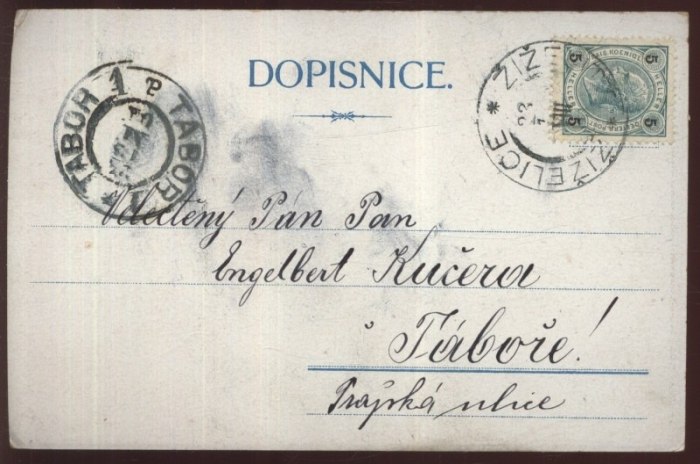 DOPISNICE.
TÁBOR 1 TÁBOR
ŽIŽELICE * ŽIŽELICE
5 5
HELLER HELLER
5 5
Velectěný Pán Pan
Engelbert Kučera
v Táboře!
Pražská ulice